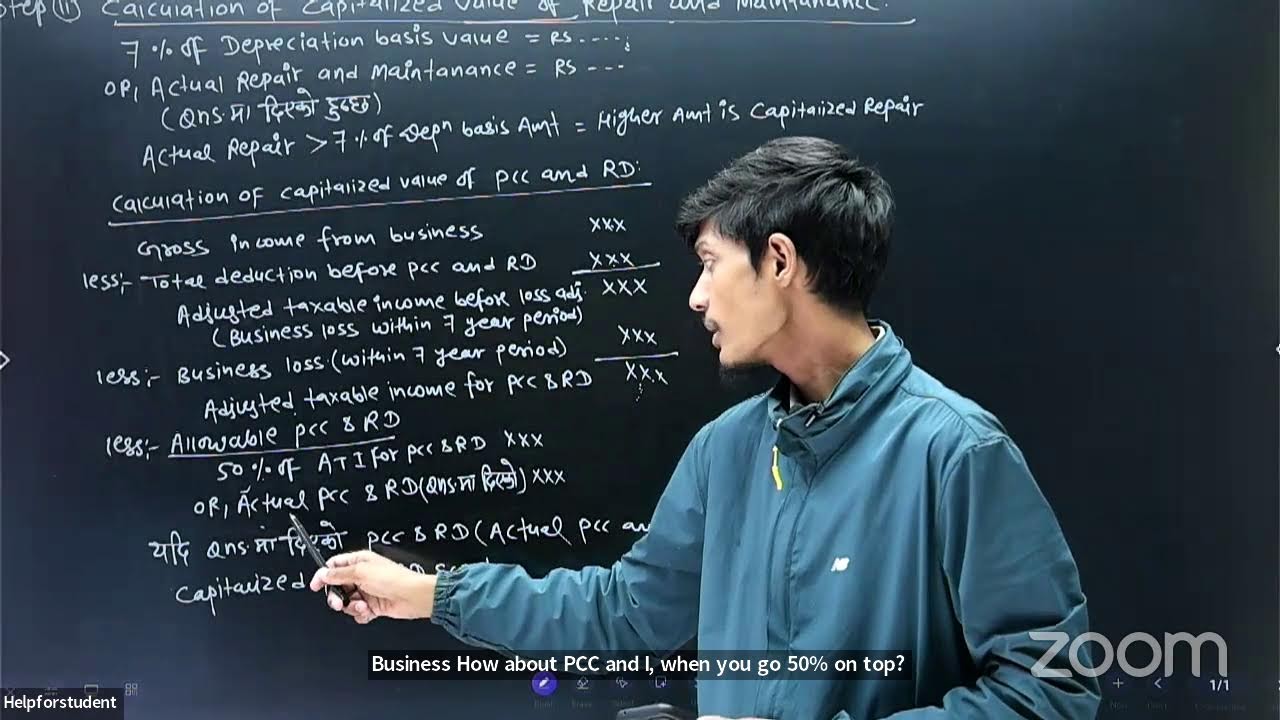 Step (ii) Calculation of Capitalized value of Repair and Maintanance:
7 % of Depreciation basis value = RS ----;
OR, Actual Repair and Maintanance = RS ---
(Qns. मा दिएको हुन्छ)
Actual Repair > 7 % of Depⁿ basis Amt = Higher Amt is Capitalized Repair
Calculation of capitalized value of PCC and RD:
Gross income from business XXX
less:- Total deduction before PCC and RD XXX
Adjusted taxable income before loss adj. XXX
(Business loss within 7 year period)
less:- Business loss (within 7 year period) XXX
Adjusted taxable income for PCC & RD XXX
less:- Allowable PCC & RD
50 % of ATI for PCC & RD XXX
OR, Actual PCC & RD (Qns. मा दिएको) XXX
यदि Qns. मा दिएको PCC & RD (Actual PCC an
Capitalized
NB
Business How about PCC and I, when you go 50% on top?
zoom
1/1
Helpforstudent